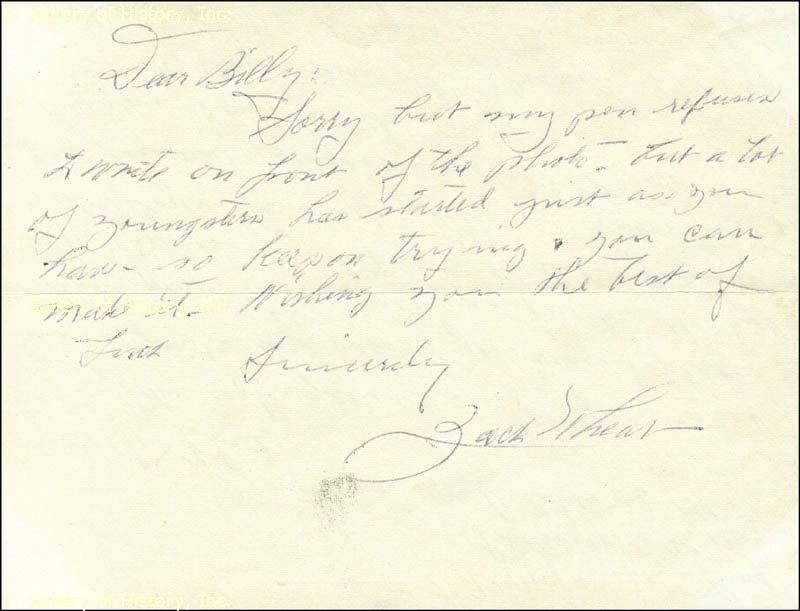 © Gallery of History, Inc.
Dear Billy:
Sorry but my pen refuses
to write on front of the photo - but a lot
of youngsters has started just as you
have - so keep on trying. you can
make it - Wishing you the best of
Luck Sincerely
Zack Wheat
© Gallery of History, Inc.